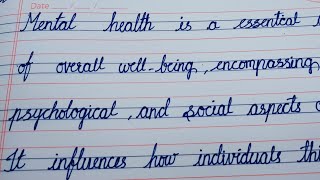 Date
Mental health is a essential
of overall well-being, encompassing
psychological, and social aspects
It influences how individuals